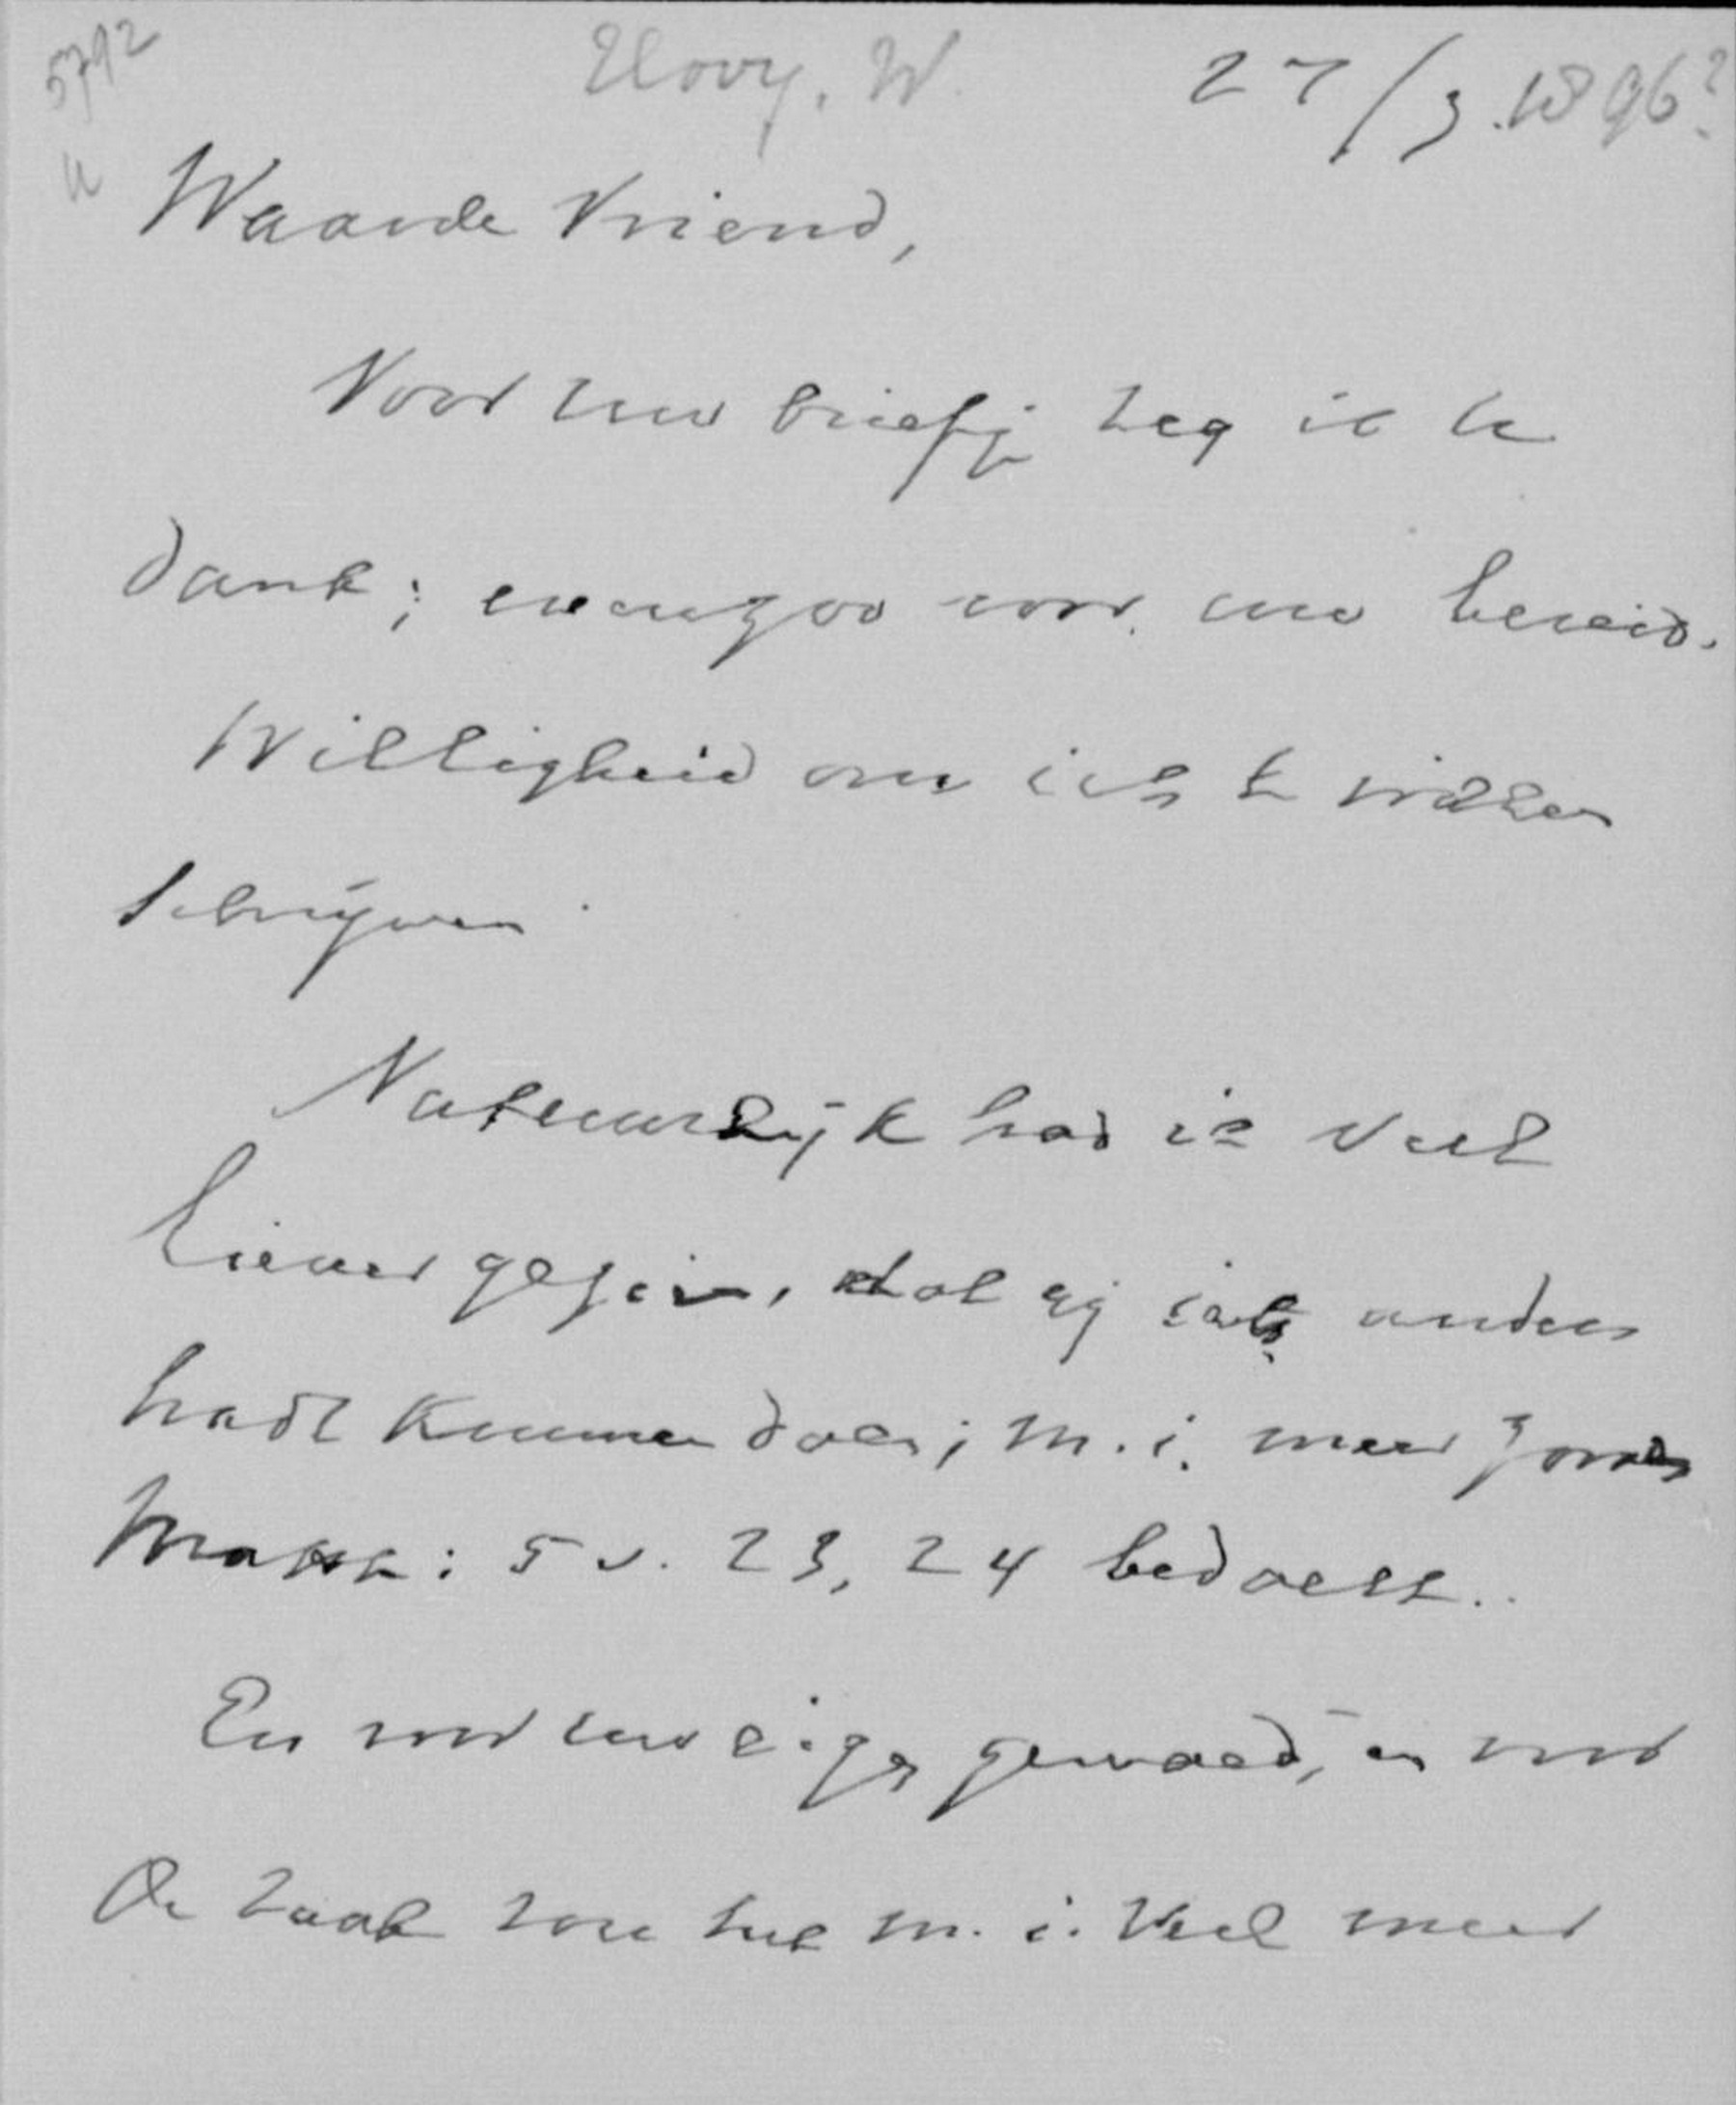 5792
Hovy, W. 27/3. 1896?
Waarde Vriend,
Voor uw briefje zeg ik U
dank; evenzoo voor uw bereid-
willigheid om iets te willen
schrijven.
Natuurlijk had ik veel
liever gezien, dat gij iets anders
hadt kunnen doen; m.i. meer zooals
Matth: 5 v. 23, 24 bedoelt.
En voor uw eigen gemoed, en voor
De zaak zou het m.i. veel meer